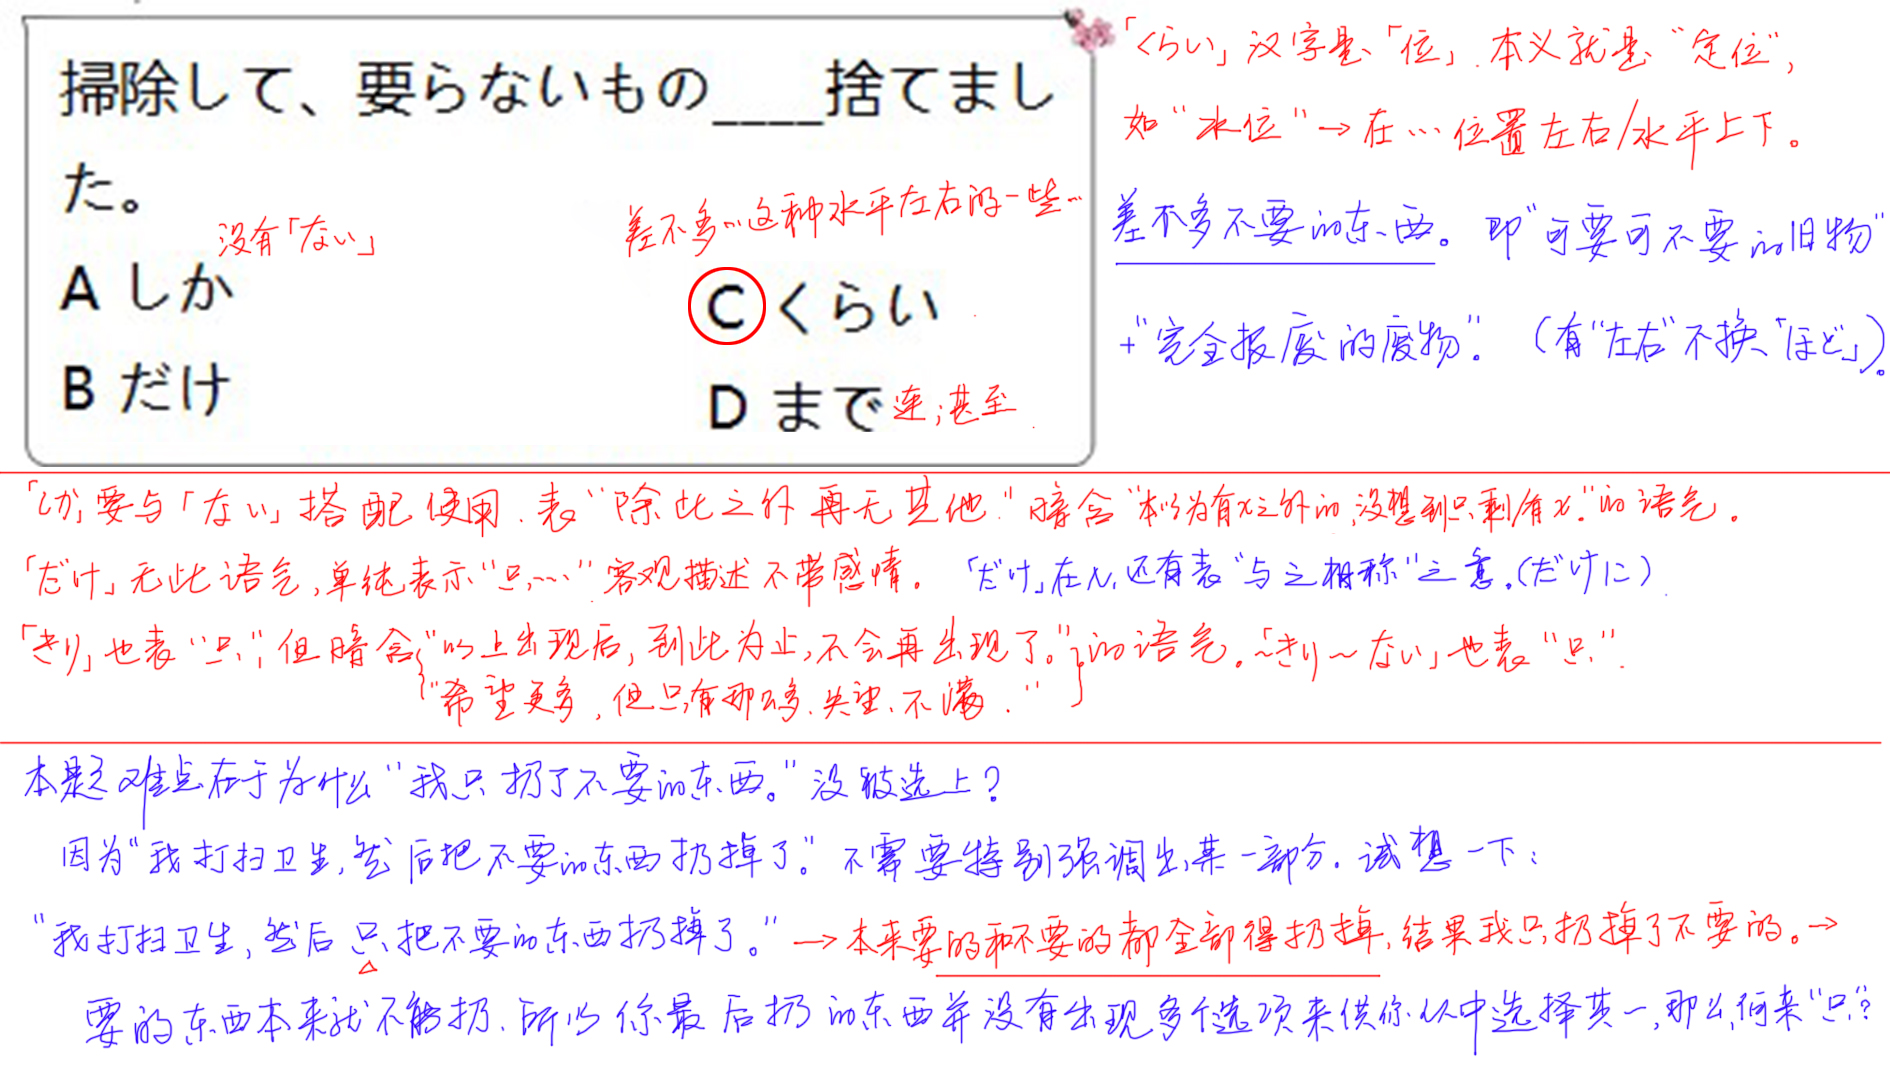 掃除して、要らないもの____捨てまし
た。
没有「ない」
A しか
B だけ
差不多…这种水平左右的一些…
C くらい
D まで 连;甚至
「くらい」汉字是「位」.本义就是“定位”,
如“水位”→在…位置左右/水平上下。
差不多不要的东西。即“可要可不要的旧物”
+“完全报废的废物”.(有“左右”不换「ほど」)。
「しか」要与「ない」搭配使用.表“除此之外再无其他.”暗含“本以为有x之外的,没想到只剩/有x.”的语气。
「だけ」无此语气,单纯表示“只…”客观描述不带感情。「だけ」在N₁还有表“与之相称”之意。(だけに)
「きり」也表“只”;但暗含{“以上出现后,到此为止,不会再出现了。”}的语气。「~きり~ない」也表“只”.
“希望更多,但只有那么多.失望.不满.”
本题难点在于为什么“我只扔了不要的东西。”没被选上?
因为“我打扫卫生,然后把不要的东西扔掉了。”不需要特别强调出某一部分.试想一下:
“我打扫卫生,然后只把不要的东西扔掉了。”→本来要的和不要的都全部得扔掉,结果我只扔掉了不要的。→
要的东西本来就不能扔.所以你最后扔的东西并没有出现多个选项来供你从中选择其一,那么,何来“只”?